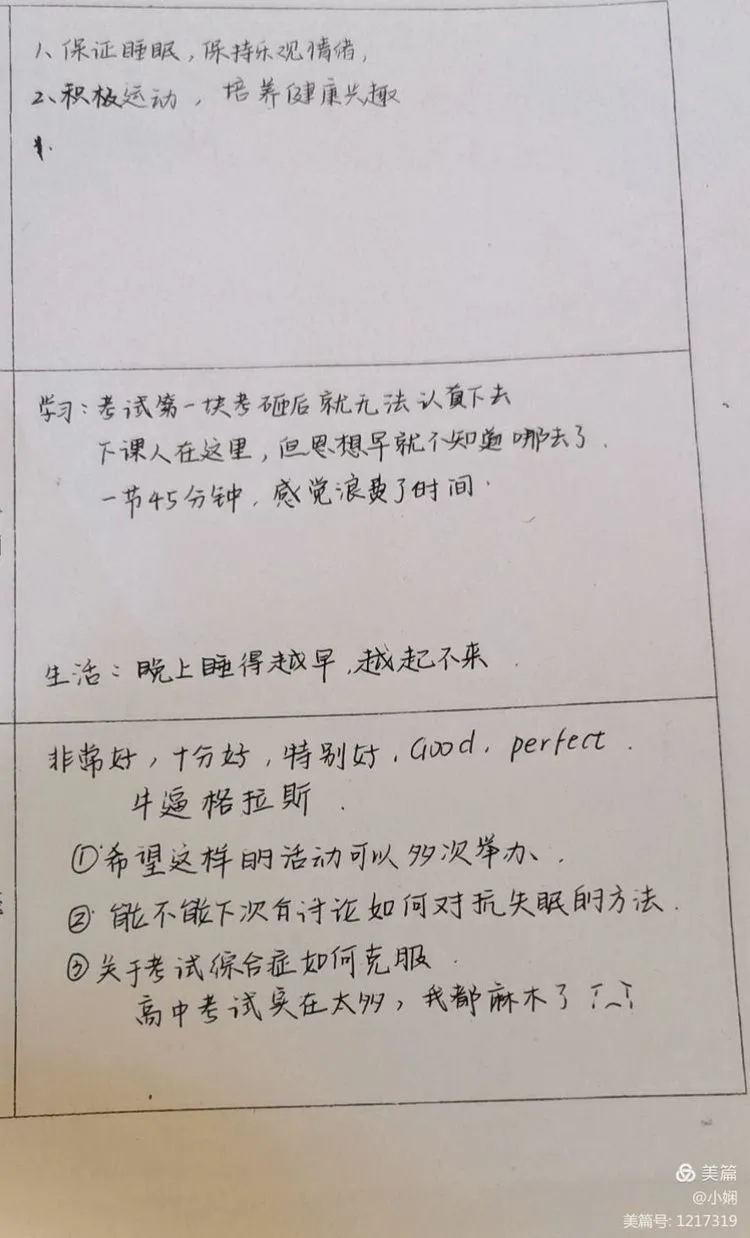 1、保证睡眠，保持乐观情绪，
2、积极运动，培养健康兴趣
学习：考试第一块考砸后就无法认真下去
下课人在这里，但思想早就不知道哪去了．
一节45分钟，感觉浪费了时间．
生活：晚上睡得越早，越起不来．
非常好，十分好，特别好，Good，perfect．
牛逼格拉斯．
①希望这样的活动可以多次举办、．
②能不能下次有讨论如何对抗失眠的方法．
③关于考试综合症如何克服．
高中考试实在太多，我都麻木了 T_T
美篇
@小娴
美篇号: 1217319